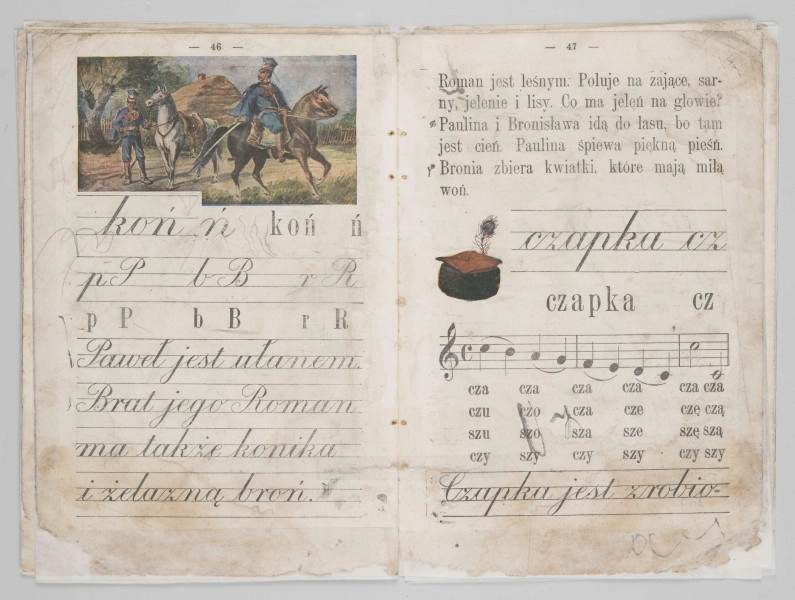 — 46 —
koń ń koń ń
p P b B r R
p P b B r R
Paweł jest ułanem.
Brat jego Roman
ma także konika
i żelazną broń.
— 47 —
Roman jest leśnym. Poluje na zające, sar-
ny, jelenie i lisy. Co ma jeleń na głowie?
Paulina i Bronisława idą do lasu, bo tam
jest cień. Paulina śpiewa piękną pieśń.
Bronia zbiera kwiatki, które mają miłą
woń.
czapka cz
czapka cz
cza cza cza cza cza cza
czu czo cza cze czę czą
szu szo sza sze szę szą
czy szy czy szy czy szy
Czapka jest zrobio-